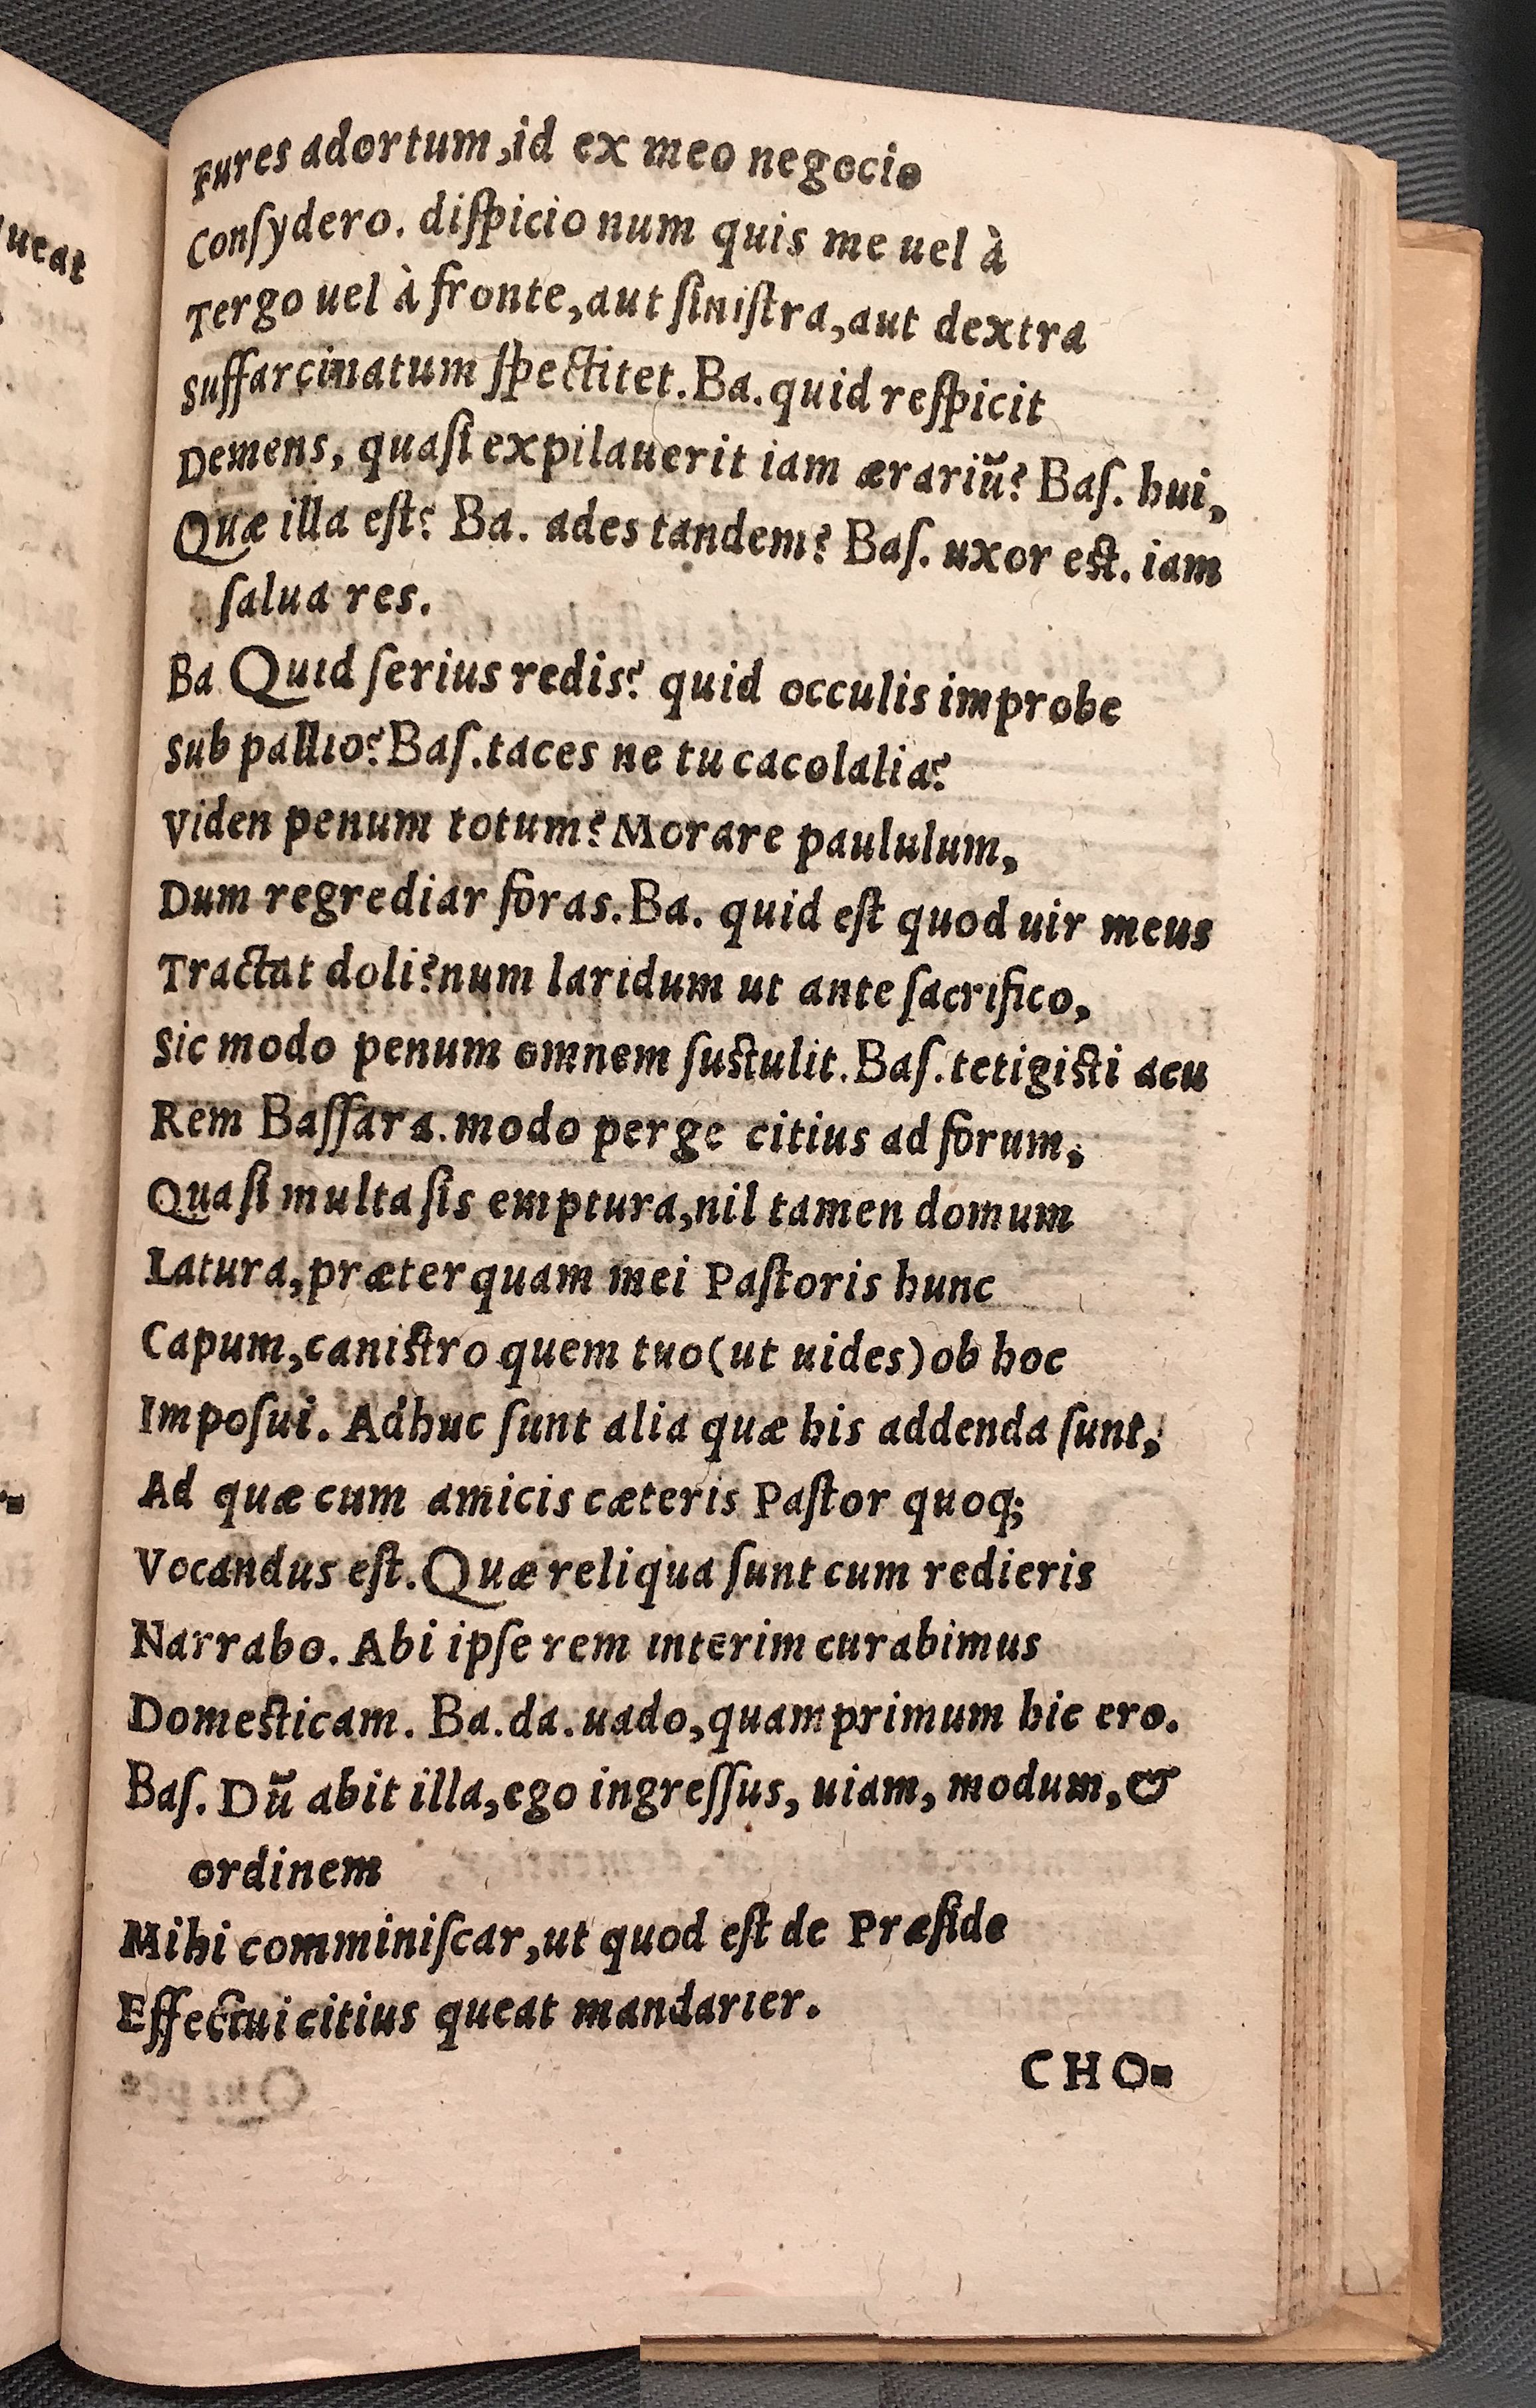 ueat
Fures adortum, id ex meo negocio
Conſydero. diſpicio num quis me uel à
Tergo uel à fronte, aut ſiniſtra, aut dextra
Suffarcinatum ſpectitet. Ba. quid reſpicit
Demens, quaſi expilauerit iam ærariũ? Baſ. hui,
Quæ illa eſt? Ba. ades tandem? Baſ. uxor eſt. iam
ſalua res.
Ba Quid ſerius redis? quid occulis improbe
Sub pallio? Baſ. taces ne tu cacolalia?
Viden penum totum? Morare paululum,
Dum regrediar foras. Ba. quid eſt quod uir meus
Tractat doli? num laridum ut ante ſacrifico,
Sic modo penum omnem ſuſtulit. Baſ. tetigiſti acu
Rem Baſſara. modo perge citius ad forum,
Quaſi multa ſis emptura, nil tamen domum
Latura, præterquam mei Paſtoris hunc
Capum, caniſtro quem tuo (ut uides) ob hoc
Impoſui. Adhuc ſunt alia quæ his addenda ſunt,
Ad quæ cum amicis cæteris Paſtor quoq;
Vocandus eſt. Quæ reliqua ſunt cum redieris
Narrabo. Abi ipſe rem interim curabimus
Domeſticam. Ba. da. uado, quamprimum hic ero.
Baſ. Dũ abit illa, ego ingreſſus, uiam, modum, &
ordinem
Mihi comminiſcar, ut quod eſt de Præſide
Effectui citius queat mandarier.
CHO=